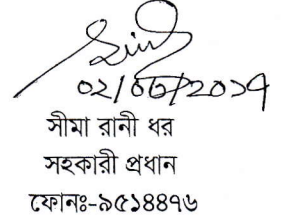 ০২/০৮/২০১৭
সীমা রানী ধর
সহকারী প্রধান
ফোনঃ-৯৫১৪৪৭৬